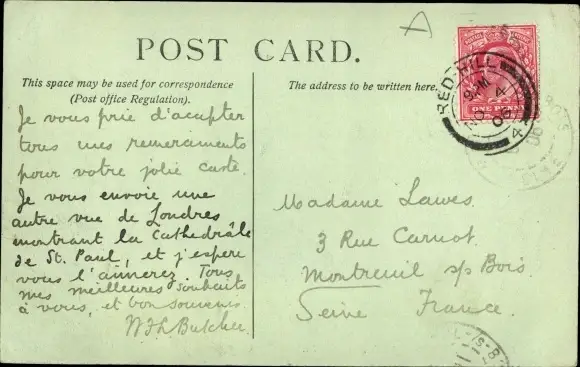 A
POST CARD.
This space may be used for correspondence
(Post office Regulation).
The address to be written here.
Je vous prie d'accepter
tous mes remerciments
pour votre jolie carte.
Je vous envoie une
autre vue de Londres
montrant la Cathedrâle
de St. Paul, et j'espère
vous l'aimerez. Tous
mes meilleures souhaits
à vous, et bon souvenir.
Madame Lawes.
3 Rue Carnot.
Montreuil s/p Bois.
Seine France.
RED-HILL
4
ONE PENNY